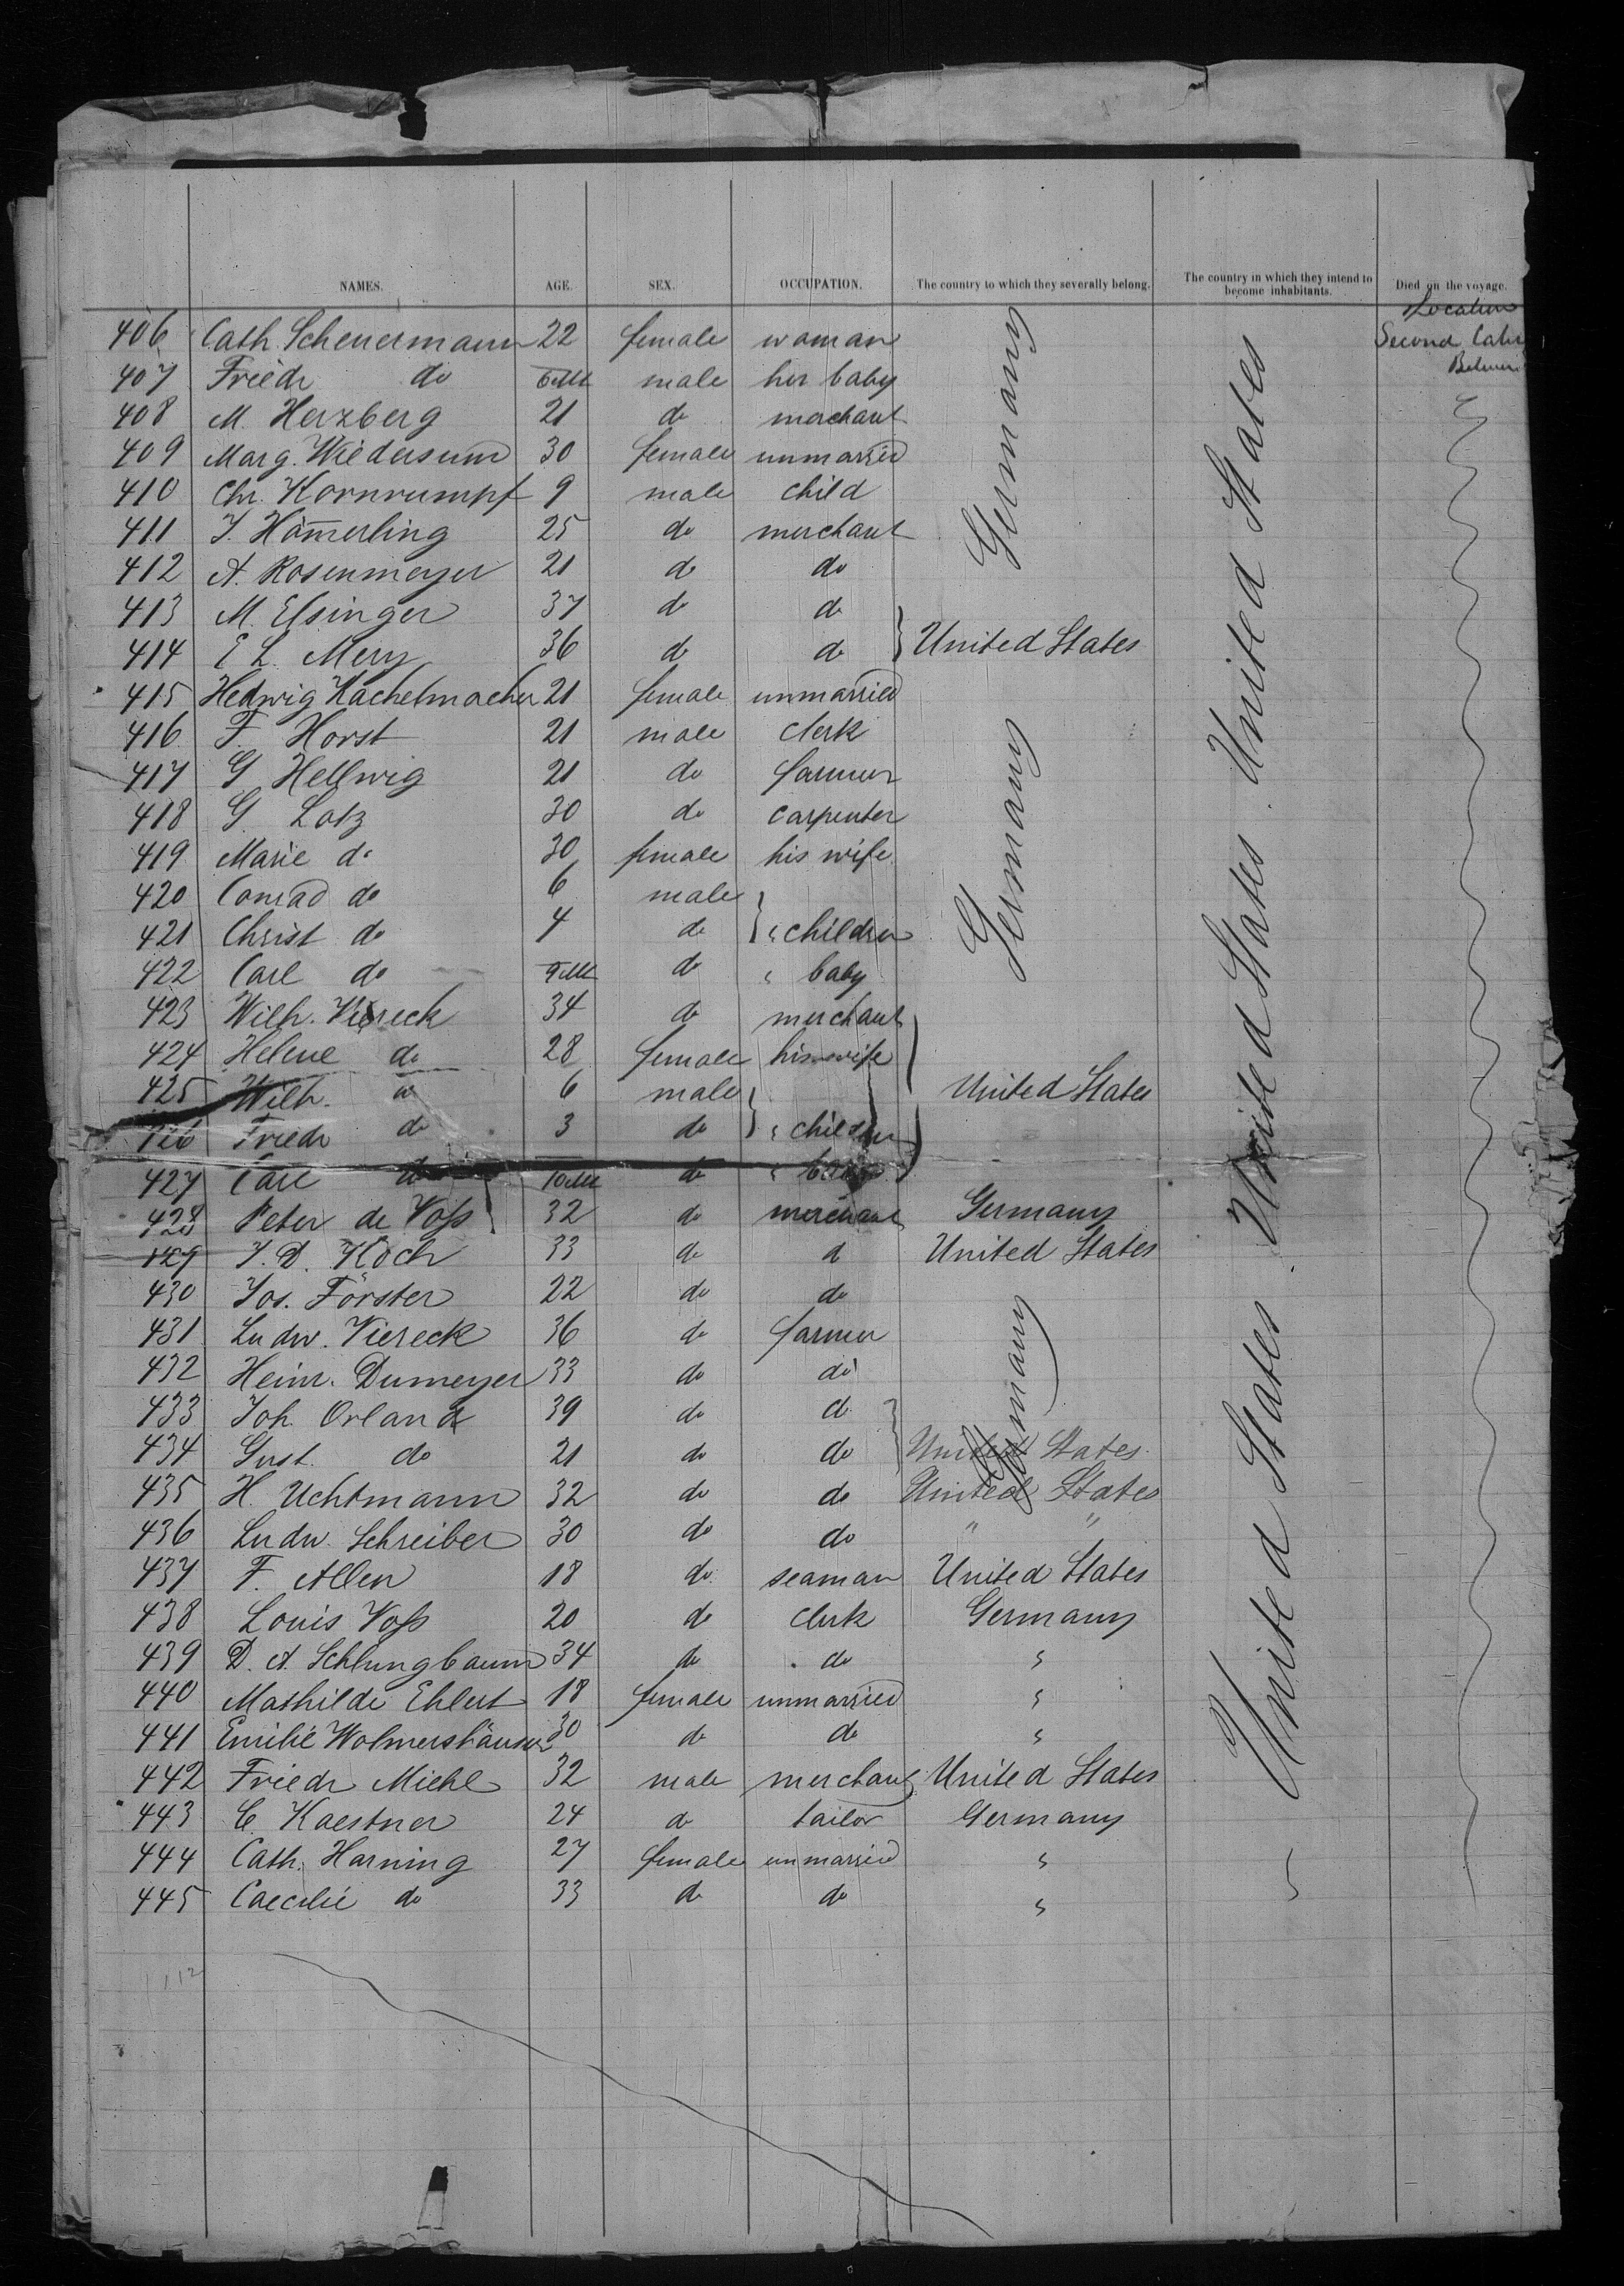 NAMES. AGE. SEX. OCCUPATION. The country to which they severally belong. The country in which they intend to become inhabitants. Died on the voyage.
Location
Second Cabin
Between
406 Cath. Scheuermann 22 female woman
407 Friedr do 6 M male her baby
408 M. Herzberg 21 do merchant
409 Marg. Wiedersum 30 female unmarried
410 Chr. Kornrumpf 9 male child
411 J. Hömerling 25 do merchant
412 A. Rosenmeyer 21 do do
413 M. Elsinger 37 do do
414 E L. Mery 36 do do } United States
415 Hedwig Kachelmacher 21 female unmarried
416 F. Horst 21 male clerk
417 G Hellwig 21 do farmer
418 G. Lotz 30 do carpenter
419 Marie do 30 female his wife
420 Conrad do 6 male
421 Christ do 4 do } " children
422 Carl do 9 M do " baby
423 Wilh. Viereck 34 do merchant
424 Helene do 28 female his wife
425 Wilh. do 6 male United States
426 Friedr do 3 do } " children
427 Carl do 10 M do " baby
428 Peter de Voss 32 do merchant Germany
429 J. D. Koch 33 do d United States
430 Jos. Förster 22 do do
431 Ludw. Viereck 36 do farmer
432 Heinr. Dumeyer 33 do do
433 Joh. Orland 39 do d
434 Gust. do 21 do do } United States
435 H. Uchtmann 32 do do United States
436 Ludw. Schreiber 30 do do " "
437 F. Allen 18 do seaman United States
438 Louis Voss 20 do clerk Germany
439 D. A. Schlungbaum 34 do do "
440 Mathilde Ehlert 18 female unmarried "
441 Emilie Wolmershäuser 30 do do "
442 Friedr Miehl 32 male merchant United States
443 C. Kaestner 24 do tailor Germany
444 Cath. Harning 27 female unmarried "
445 Caecilie do 33 do do "
Germany
Germany
Germany
United States
United States
United States